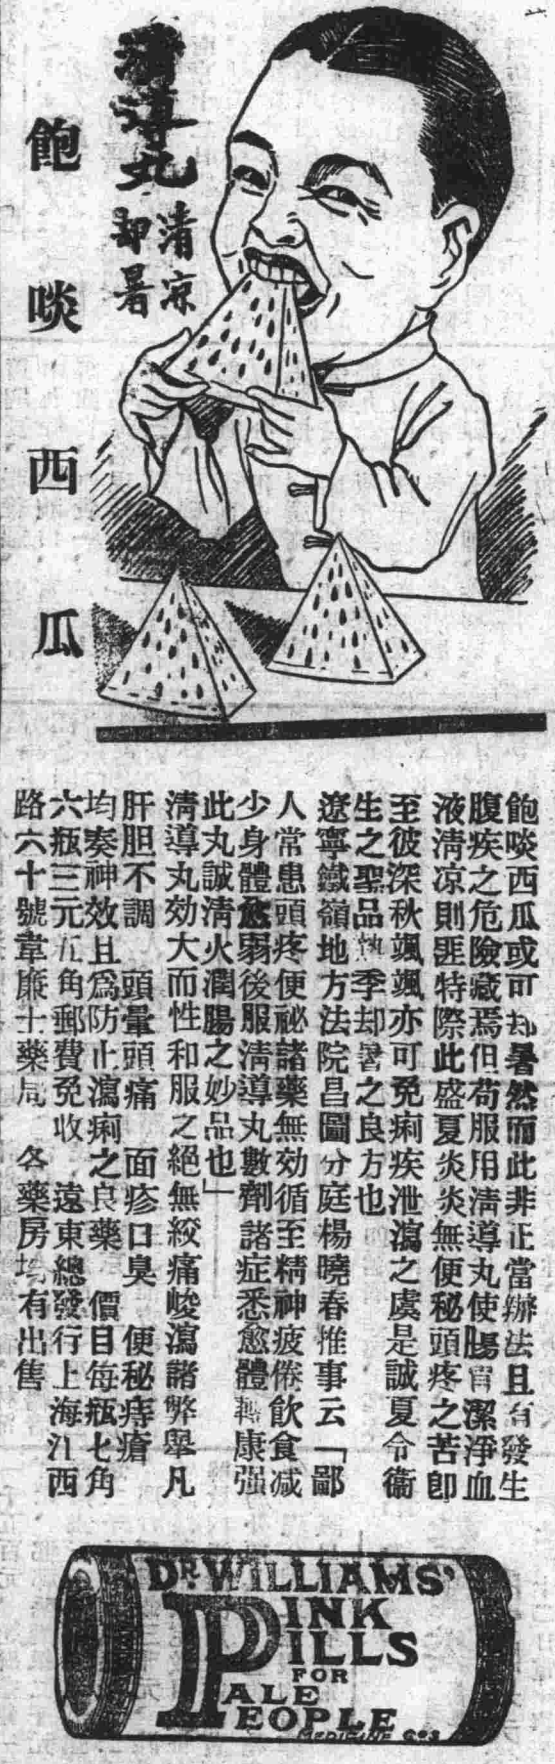 清導丸
清凉
却暑
飽啖西瓜
飽啖西瓜或可却暑然而此非正當辦法且有發生
腹疾之危險藏焉但苟服用清導丸使腸胃潔淨血
液清凉則匪特際此盛夏炎炎無便秘頭疼之苦卽
至彼深秋颯颯亦可免痢疾泄瀉之虞是誠夏令衞
生之聖品熱季却暑之良方也
遼寧鐵嶺地方法院昌圖分庭楊曉春推事云「鄙
人常患頭疼便祕諸藥無効循至精神疲倦飲食减
少身體愈弱後服淸導丸數劑諸症悉愈體轉康强
此丸誠清火潤腸之妙品也」
淸導丸効大而性和服之絕無絞痛峻瀉諸弊舉凡
肝胆不調 頭暈頭痛 面疹口臭 便秘痔瘡
均奏神效且爲防止瀉痢之良藥 價目每瓶七角
六瓶三元九角郵費免收 遠東總發行上海江西
路六十號韋廉士藥局 各藥房均有出售
DR. WILLIAMS'
PINK
PILLS
FOR
PALE
PEOPLE
MEDICINE Co.